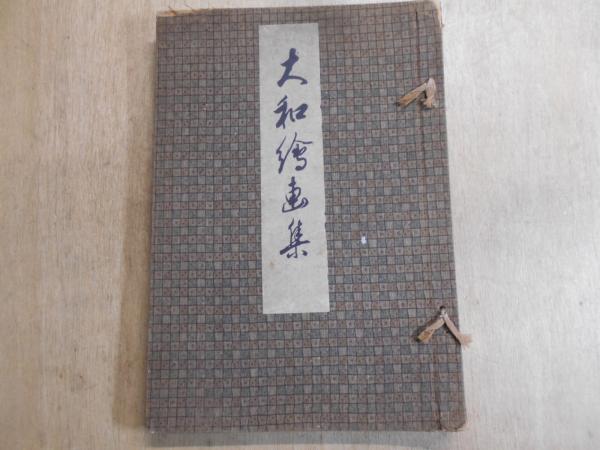 大和繪画集